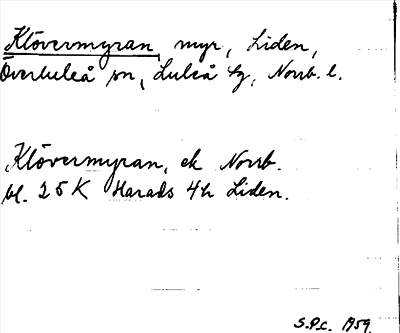 Klövermyran, myr, Liden,
Överluleå sn, Luleå tg, Norrb. l.
Klövermyran, ek Norrb.
bl. 25 K Harads 4h Liden.
S.P.C. 1959.